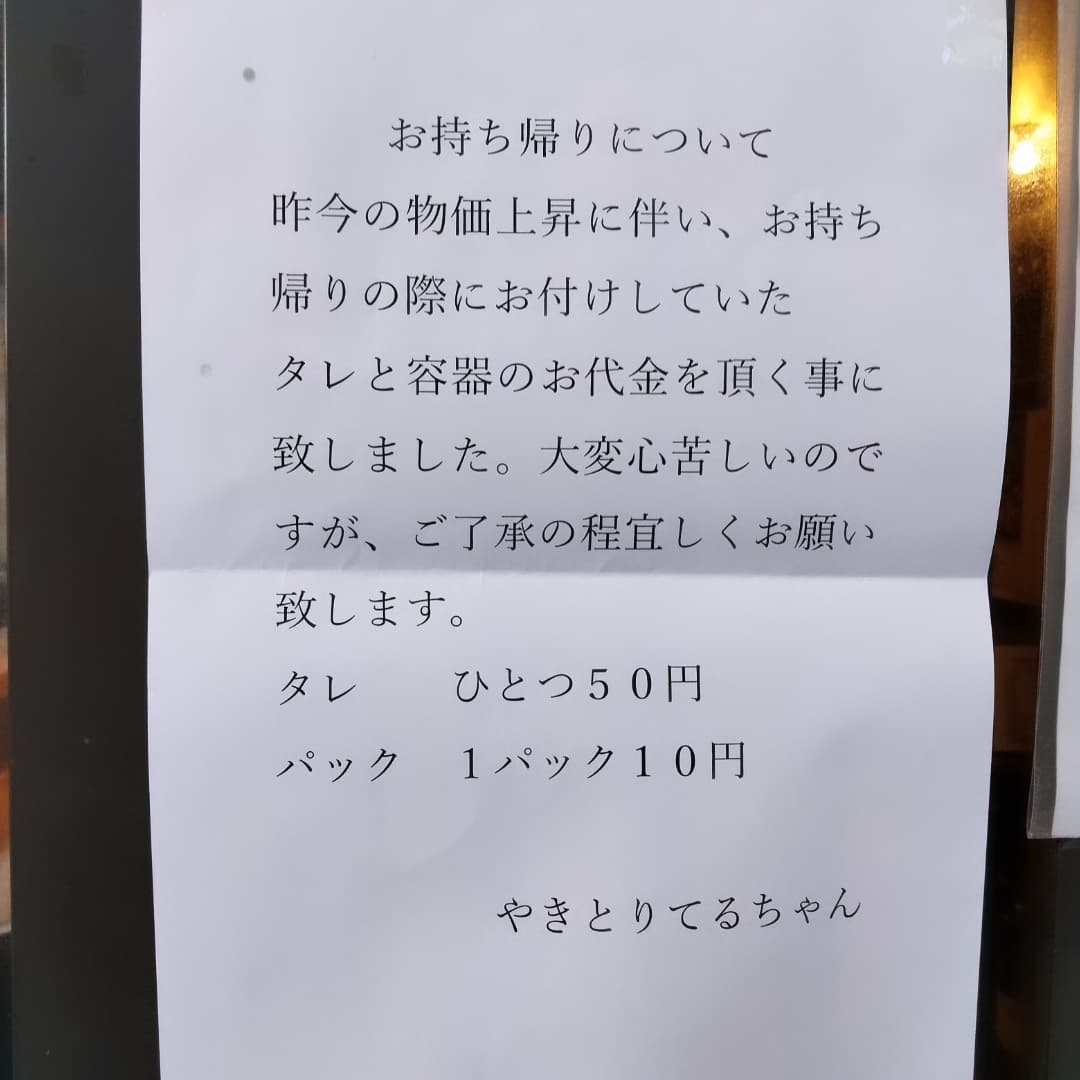 お持ち帰りについて
昨今の物価上昇に伴い、お持ち
帰りの際にお付けしていた
タレと容器のお代金を頂く事に
致しました。大変心苦しいので
すが、ご了承の程宜しくお願い
致します。
タレ　　ひとつ５０円
パック　１パック１０円
やきとりてるちゃん